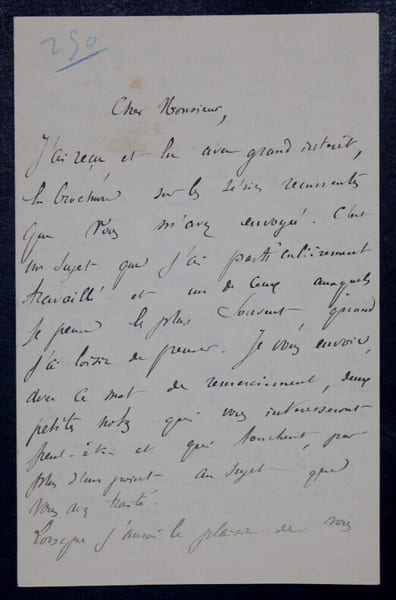 250
Cher Monsieur,
J'ai reçu et lu avec grand intérêt,
la brochure sur les séries récurrentes
que vous m'avez envoyé. C'est
un sujet que j'ai particulièrement
travaillé et un de ceux auxquels
je pense le plus souvent quand
j'ai loisir de penser. Je vous envoie,
avec ce mot de remerciement, deux
petites notes qui vous intéresseront
peut-être et qui touchent, par
plus d'un point au sujet que
vous avez traité.
Lorsque j'aurai le plaisir de vous